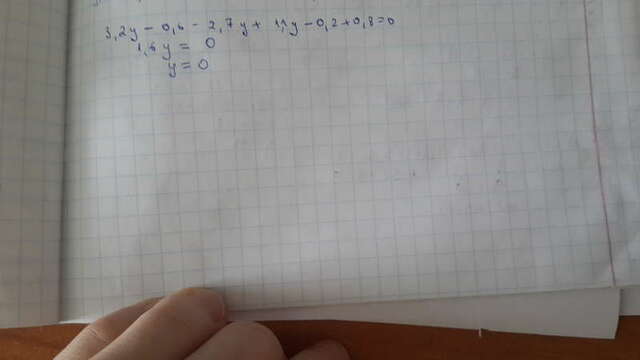 3,2y - 0,6 - 2,7y + 1,1y - 0,2 + 0,8 = 0
1,6y = 0
y = 0